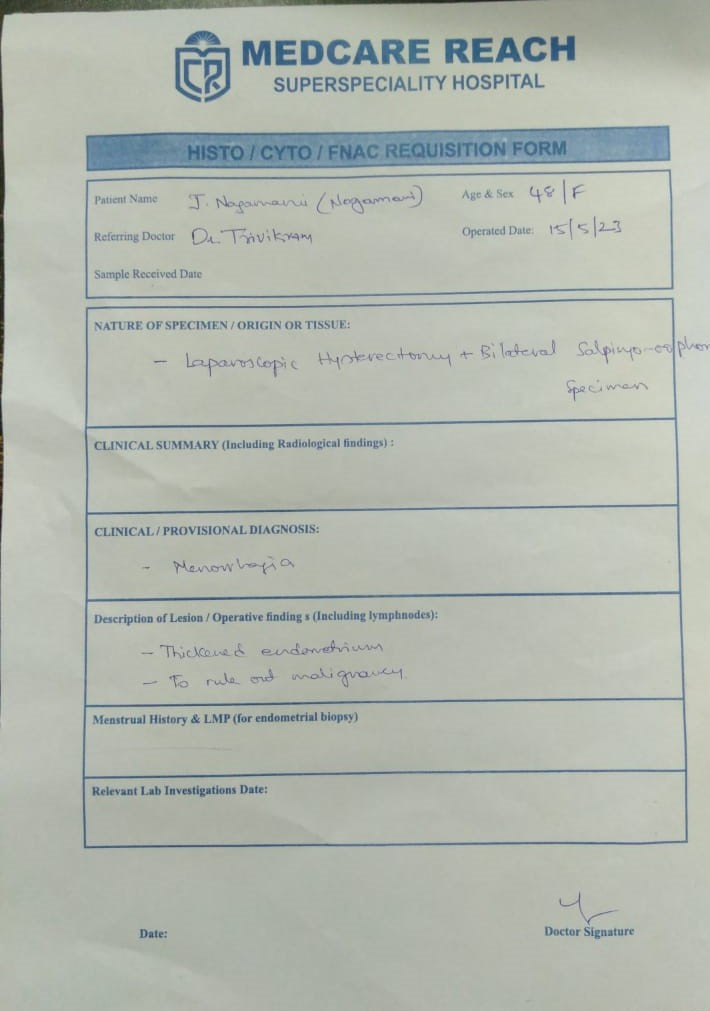 MEDCARE REACH
SUPERSPECIALITY HOSPITAL
HISTO / CYTO / FNAC REQUISITION FORM
Patient Name J. Nagamani (Nagamani) Age & Sex 48/F
Referring Doctor Dr. Trivikram Operated Date: 15/5/23
Sample Received Date
NATURE OF SPECIMEN / ORIGIN OR TISSUE:
- Laparoscopic Hysterectomy + Bilateral Salpingo-oophor
Specimen
CLINICAL SUMMARY (Including Radiological findings) :
CLINICAL / PROVISIONAL DIAGNOSIS:
- Menorrhagia
Description of Lesion / Operative finding s (Including lymphnodes):
- Thickened endometrium
- To rule out malignancy.
Menstrual History & LMP (for endometrial biopsy)
Relevant Lab Investigations Date:
Date:
Doctor Signature